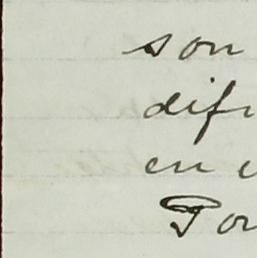 son
difi
en
Por